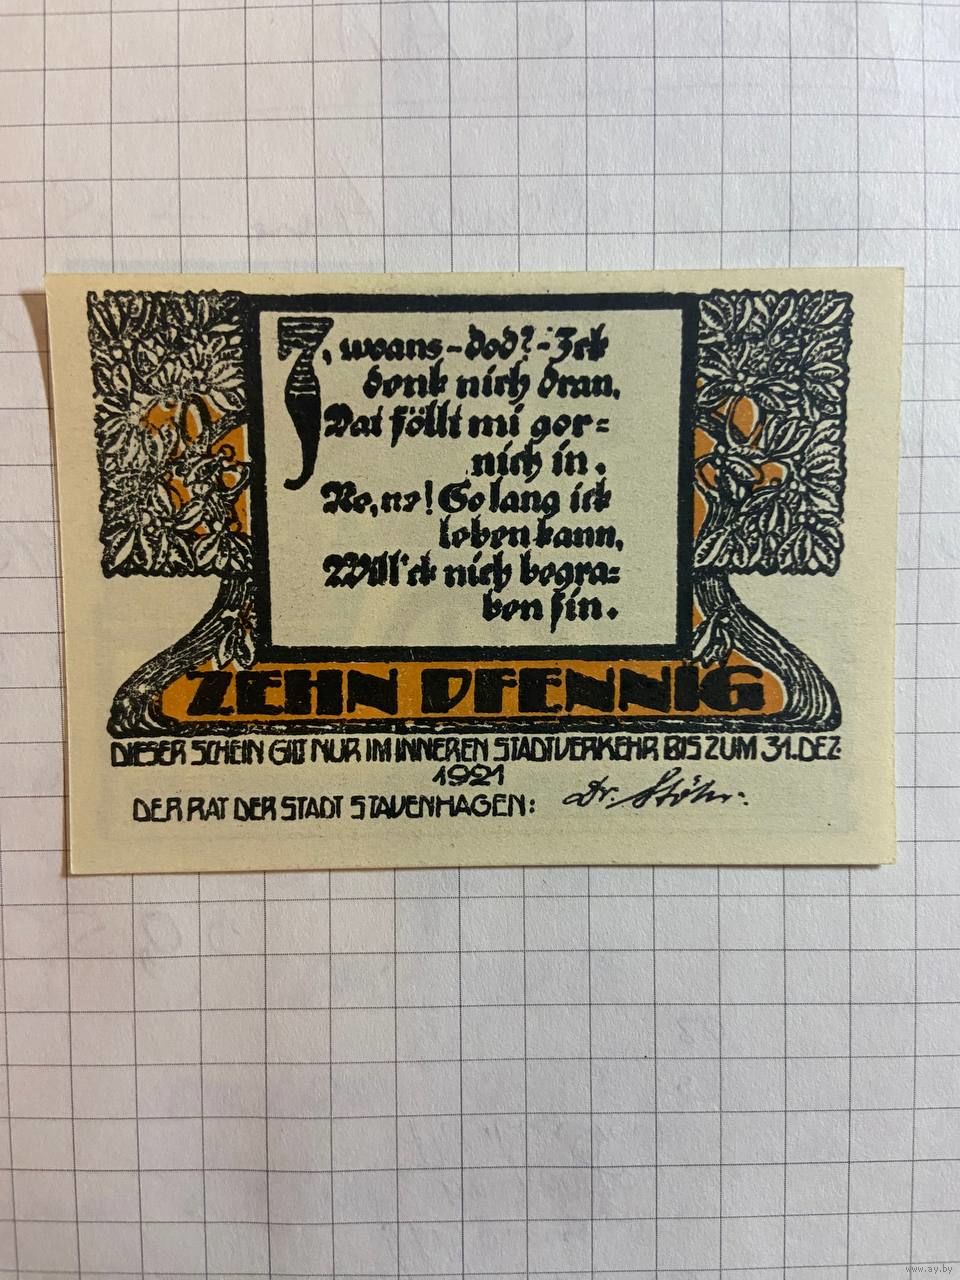 I, woans – dod? – Ick
denk nich dran,
Dat föllt mi gor=
nich in.
Ne, ne! So lang ick
leben kann,
Will'ck nich begra=
ben sin.
ZEHN PFENNIG
DIESER SCHEIN GILT NUR IM INNEREN STADTVERKEHR BIS ZUM 31. DEZ.
1921
DER RAT DER STADT STAVENHAGEN: Dr. Stöhr.
www.ay.by